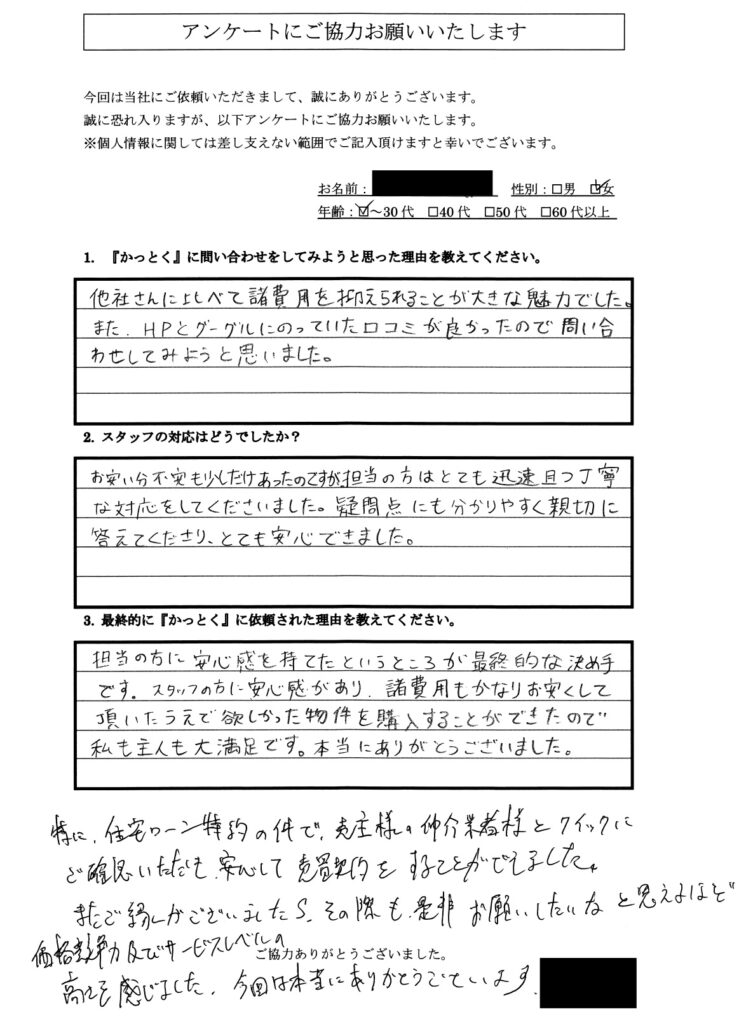 アンケートにご協力お願いいたします
今回は当社にご依頼いただきまして、誠にありがとうございます。
誠に恐れ入りますが、以下アンケートにご協力お願いいたします。
※個人情報に関しては差し支えない範囲でご記入頂けますと幸いでございます。
お名前： 性別：□男 ☑女
年齢：☑～30代 □40代 □50代 □60代以上
1. 『かっとく』に問い合わせをしてみようと思った理由を教えてください。
他社さんに比べて諸費用を抑えられることが大きな魅力でした。
また、HPとグーグルにのっていた口コミが良かったので問い合
わせしてみようと思いました。
2. スタッフの対応はどうでしたか？
お安い分不安も少しだけあったのですが担当の方はとても迅速且つ丁寧
な対応をしてくださいました。疑問点にも分かりやすく親切に
答えてくださり、とても安心できました。
3. 最終的に『かっとく』に依頼された理由を教えてください。
担当の方に安心感を持てたというところが最終的な決め手
です。スタッフの方に安心感があり、諸費用もかなりお安くして
頂いたうえで欲しかった物件を購入することができたので
私も主人も大満足です。本当にありがとうございました。
特に、住宅ローン特約の件で、売主様の仲介業者様とクイックに
ご確認いただき、安心して売買契約をすることができました。
またご縁がございましたら、その際も是非お願いしたいなと思えるほど
価格 力及びサービスレベルの
高さを感じました。今回は本当にありがとうございます。
ご協力ありがとうございました。